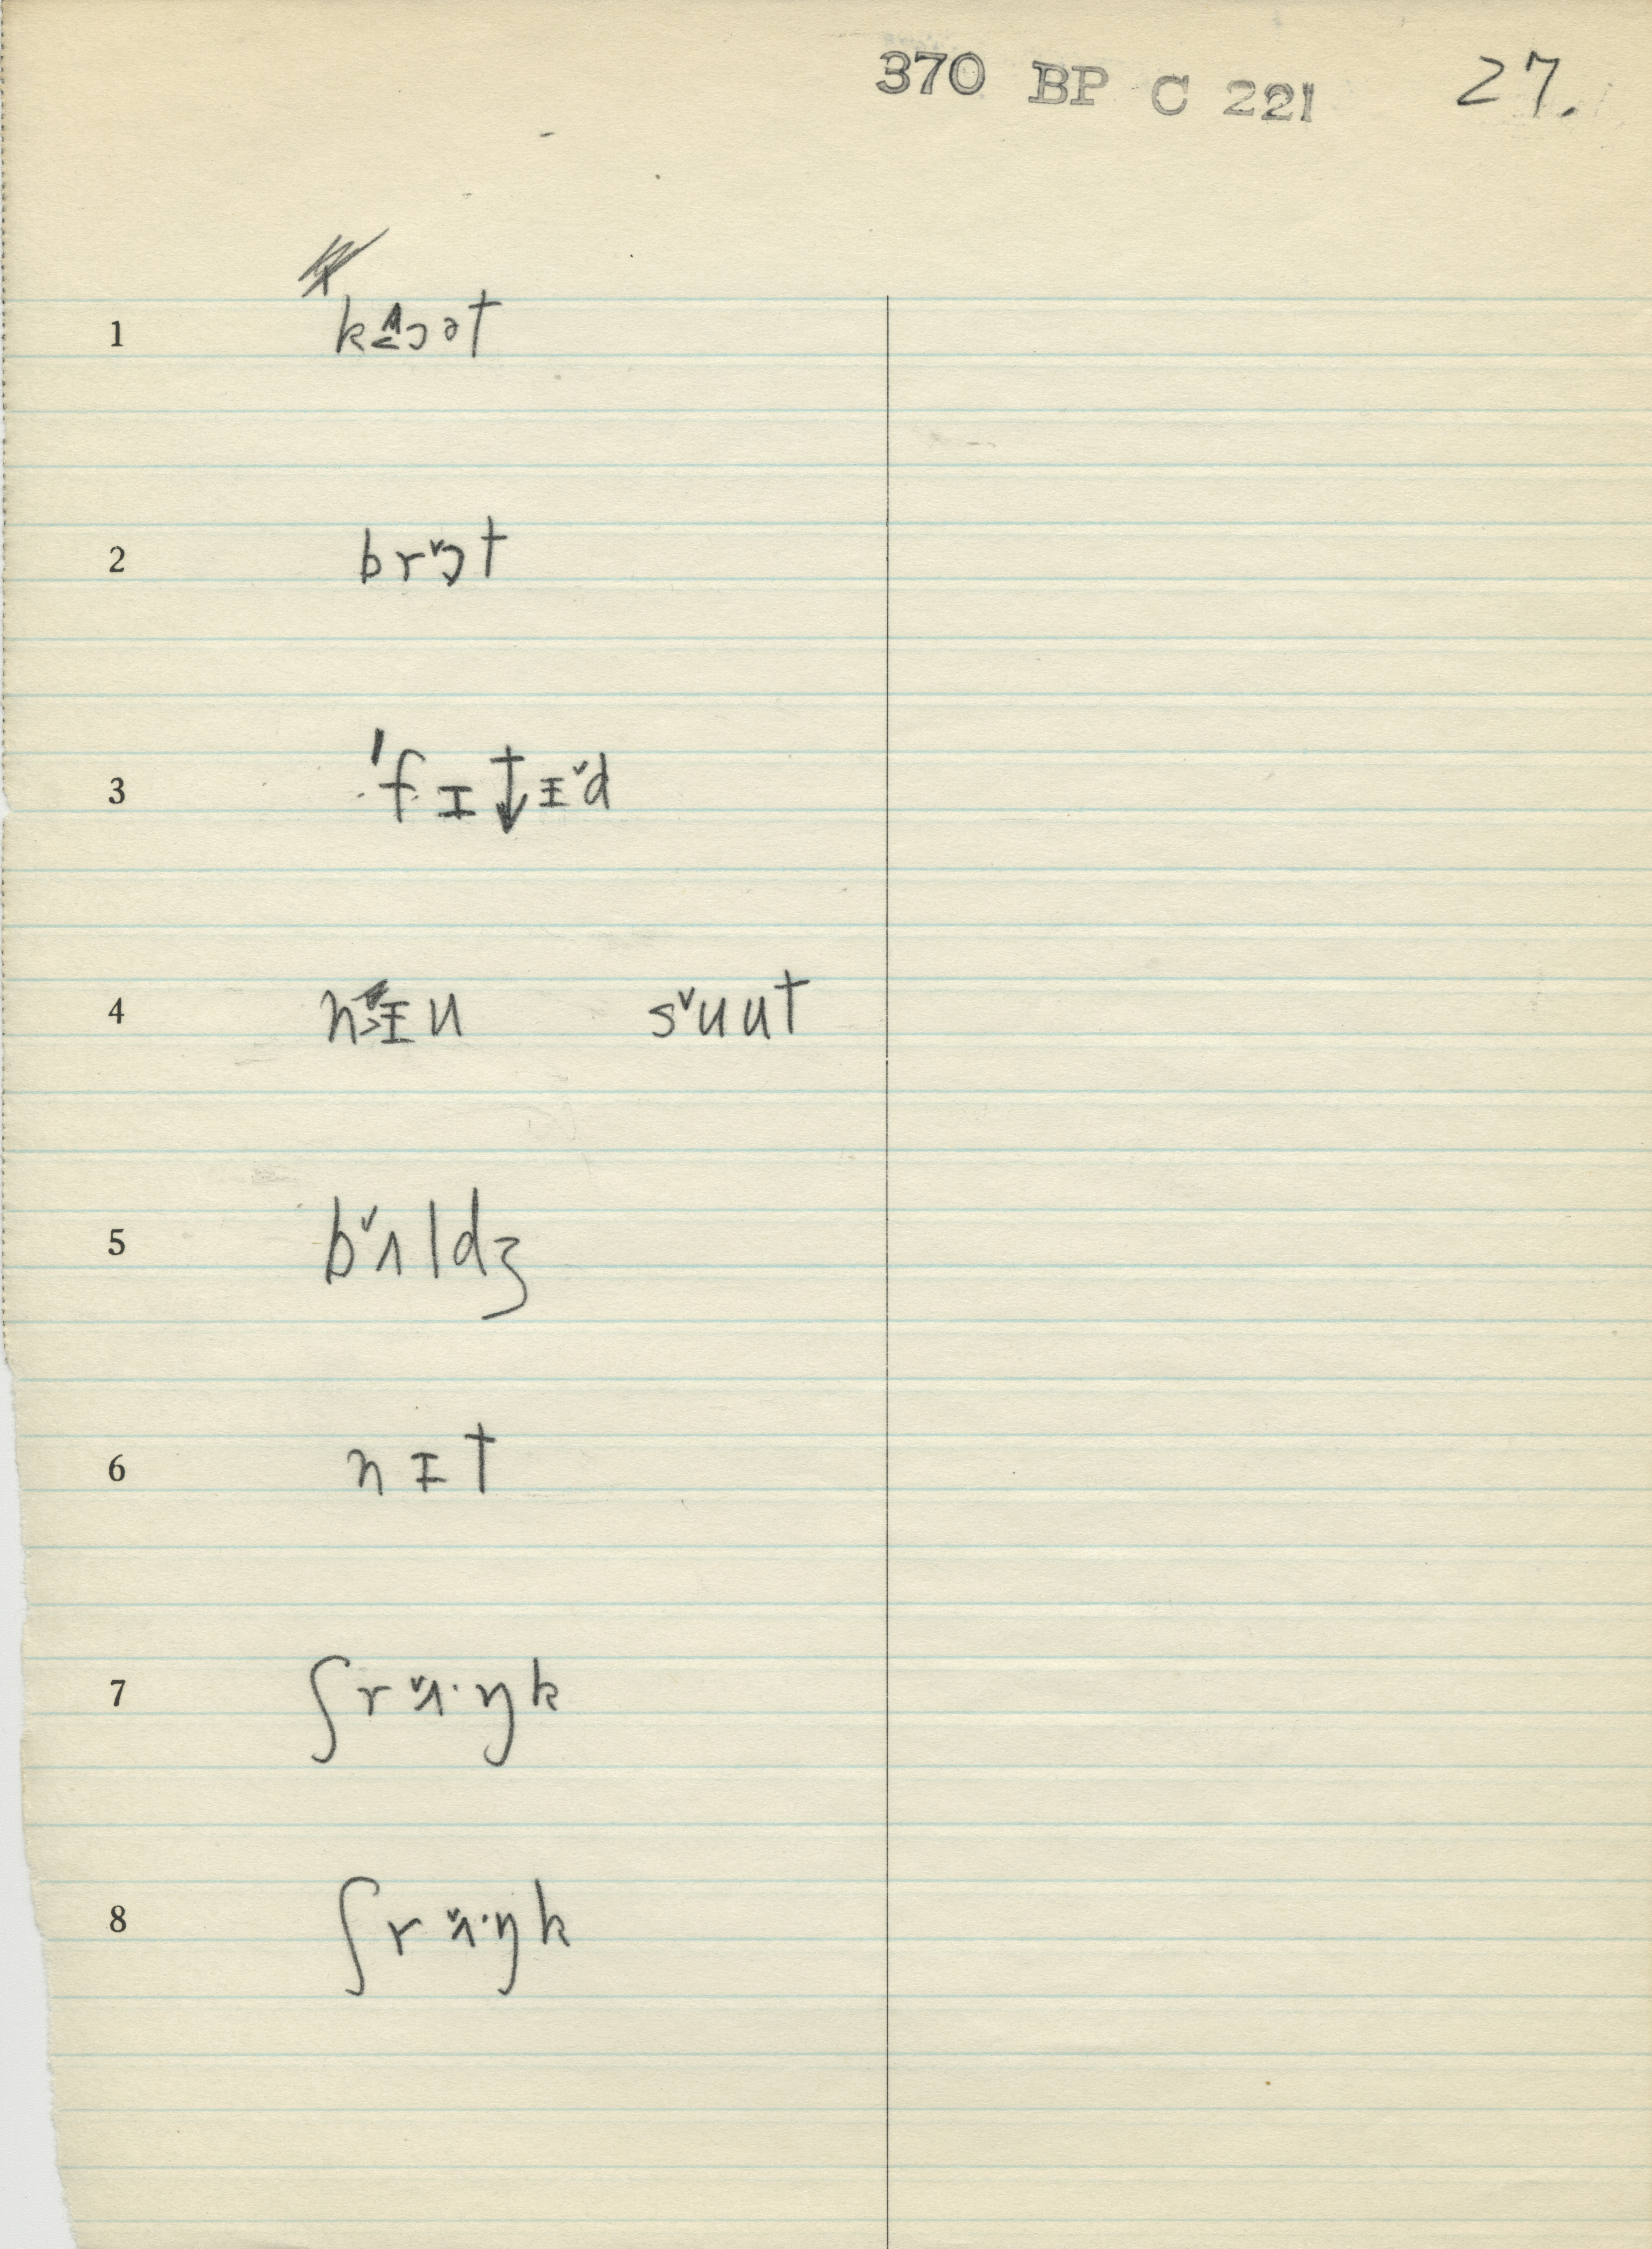 370 BP C 221 27.
1 k ɔət
2 brɔ̌t
3 'fɪt↓ɪ̵ˇd
4 nɪ̵u sˇuut
5 bˇʌldʒ
6 nɪ̵t
7 ʃrˇʌ·ŋk
8 ʃrˇʌ·ŋk